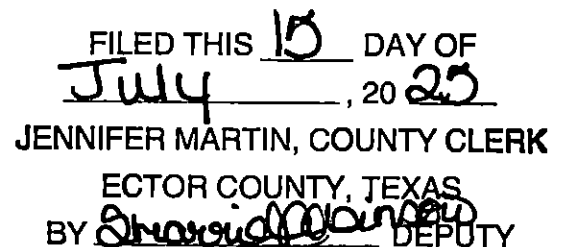 FILED THIS 15 DAY OF
July, 20 25
JENNIFER MARTIN, COUNTY CLERK
ECTOR COUNTY, TEXAS
BY DEPUTY